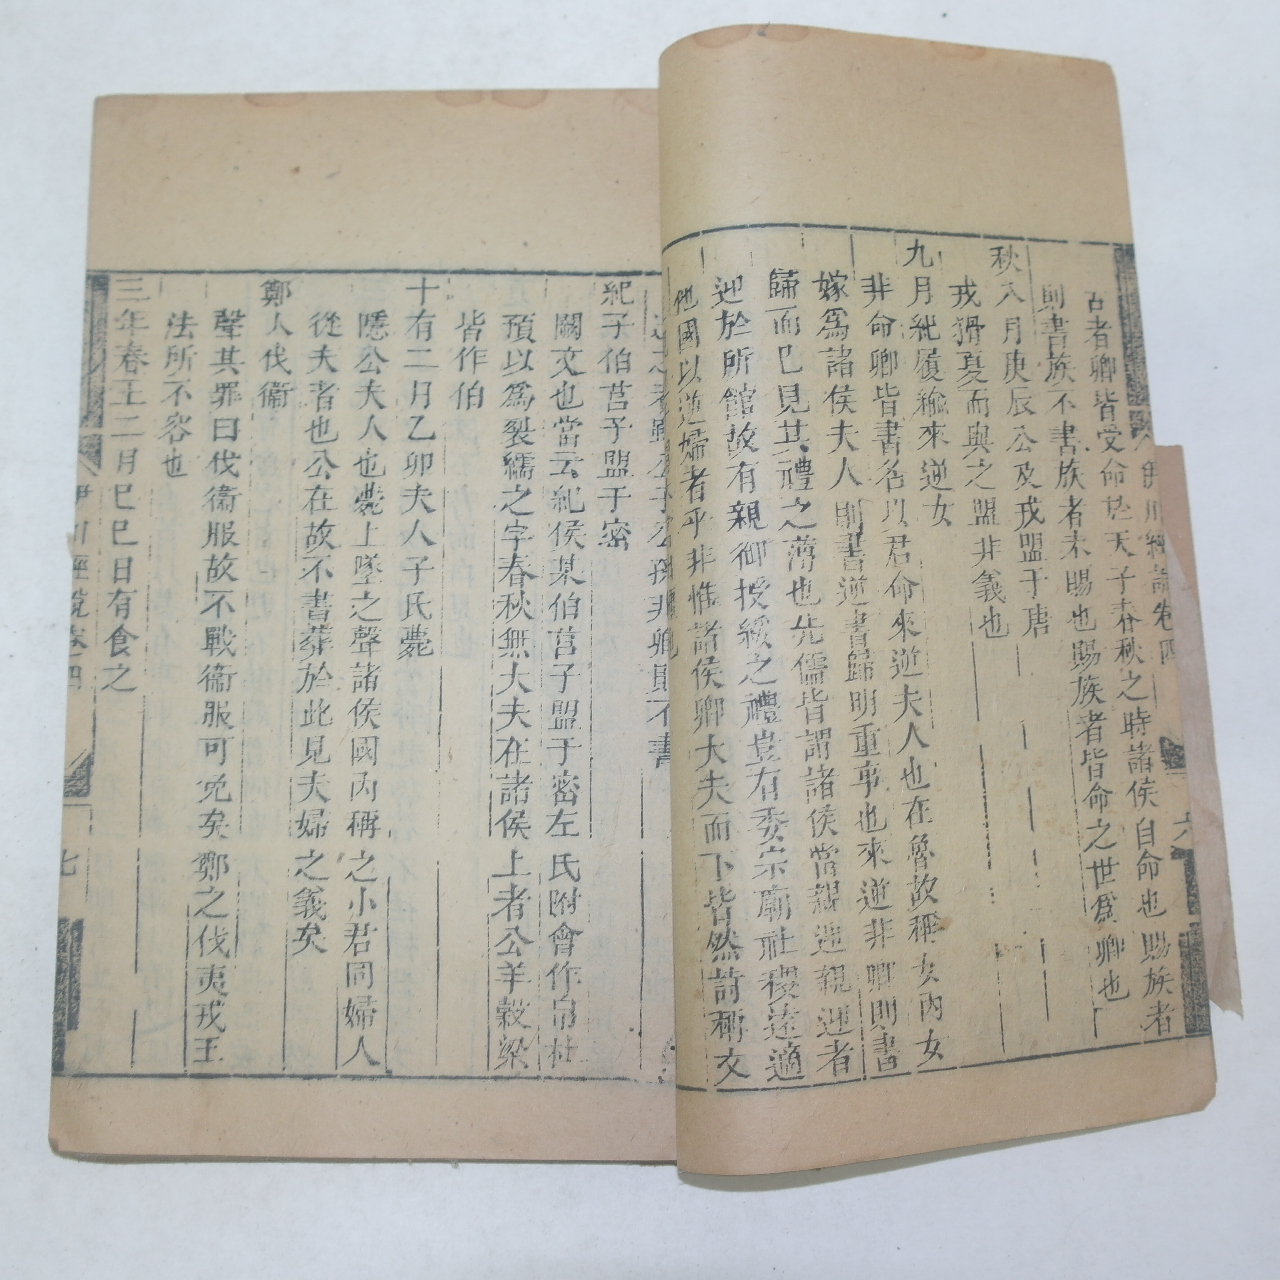 伊川經說卷四
六
古者卿皆受命於天子春秋之時諸侯自命也賜族者
則書族不書族者未賜也賜族者皆命之世爲卿也
秋八月庚辰公及戎盟于唐
戎猾夏而與之盟非義也
九月紀履緰來逆女
非命卿皆書名以君命來逆夫人也在魯故稱女內女
嫁爲諸侯夫人則書逆書歸明重事也來逆非卿則書
歸而已見其禮之薄也先儒皆謂諸侯當親迎親迎者
迎於所館故有親御授綏之禮豈有委宗廟社稷遠適
他國以逆婦者乎非惟諸侯卿大夫而下皆然詩稱文
公子公孫非卿則不書
紀子伯莒子盟于密
闕文也當云紀侯某伯莒子盟于密左氏附會作帛杜
預以爲裂繻之字春秋無大夫在諸侯上者公羊穀梁
皆作伯
十有二月乙卯夫人子氏薨
隱公夫人也薨上墜之聲諸侯國內稱之小君同婦人
從夫者也公在故不書葬於此見夫婦之義矣
鄭人伐衞
聲其罪曰伐衞服故不戰衞服可免矣鄭之伐夷戎王
法所不容也
三年春王二月己巳日有食之
伊川經說卷四
七